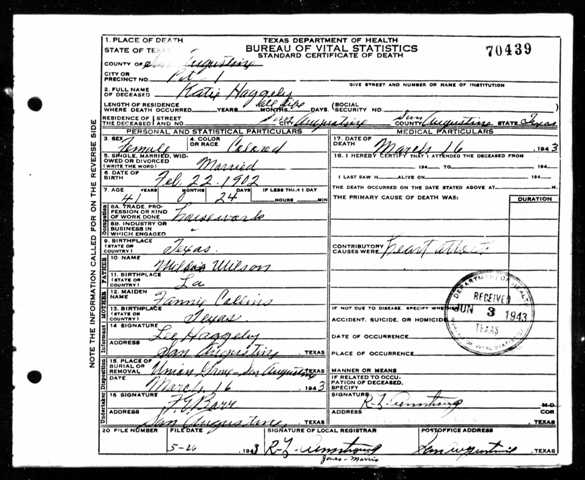 TEXAS DEPARTMENT OF HEALTH
BUREAU OF VITAL STATISTICS
STANDARD CERTIFICATE OF DEATH
70439
1. PLACE OF DEATH
STATE OF TEXAS
COUNTY OF San Augustine
CITY OR PRECINCT NO. Pct 1
GIVE STREET AND NUMBER OR NAME OF INSTITUTION
2. FULL NAME OF DECEASED Katie Haggeby
LENGTH OF RESIDENCE WHERE DEATH OCCURRED YEARS MONTHS DAYS (SOCIAL SECURITY NO.
all life
RESIDENCE OF THE DECEASED STREET AND NO. San Augustine CITY San Augustine STATE Texas
PERSONAL AND STATISTICAL PARTICULARS
3. SEX Female
4. COLOR OR RACE Colored
5. SINGLE, MARRIED, WIDOWED OR DIVORCED (WRITE THE WORD) Married
6. DATE OF BIRTH Feb. 22, 1902
7. AGE YEARS MONTHS DAYS IF LESS THAN 1 DAY
41 0 24 HOURS MIN
8A. TRADE, PROFESSION OR KIND OF WORK DONE housework
8B. INDUSTRY OR BUSINESS IN WHICH ENGAGED "
9. BIRTHPLACE (STATE OR COUNTRY) Texas
10. NAME Wilson
11. BIRTHPLACE (STATE OR COUNTRY) La
12. MAIDEN NAME Fannie Collins
13. BIRTHPLACE (STATE OR COUNTRY) Texas
14. SIGNATURE Lee Haggeby
ADDRESS San Augustine TEXAS
15. PLACE OF BURIAL OR REMOVAL Union Grove - San Augustine TEXAS
DATE March 16 1943
16. SIGNATURE
ADDRESS San Augustine TEXAS
MEDICAL PARTICULARS
17. DATE OF DEATH March 16 1943
18. I HEREBY CERTIFY THAT I ATTENDED THE DECEASED FROM
194 TO 194
I LAST SAW H ALIVE ON 194
THE DEATH OCCURRED ON THE DATE STATED ABOVE AT M.
THE PRIMARY CAUSE OF DEATH WAS: DURATION
CONTRIBUTORY CAUSES WERE: heart attack
DEPARTMENT OF HEALTH
RECEIVED
JUN 3 1943
TEXAS
BUREAU OF VITAL STATISTICS
IF NOT DUE TO DISEASE, SPECIFY WHETHER:
ACCIDENT, SUICIDE, OR HOMICIDE
DATE OF OCCURRENCE
PLACE OF OCCURRENCE
MANNER OR MEANS
IF RELATED TO OCCUPATION OF DECEASED, SPECIFY
SIGNATURE R. L. Armstrong M.D.
ADDRESS COR TEXAS
20 FILE NUMBER
FILE DATE 5-26 1943
SIGNATURE OF LOCAL REGISTRAR R. L. Armstrong
POSTOFFICE ADDRESS San Augustine TEXAS
NOTE THE INFORMATION CALLED FOR ON THE REVERSE SIDE
Occupation
FATHER
MOTHER
Informant
Disposition
Undertaker